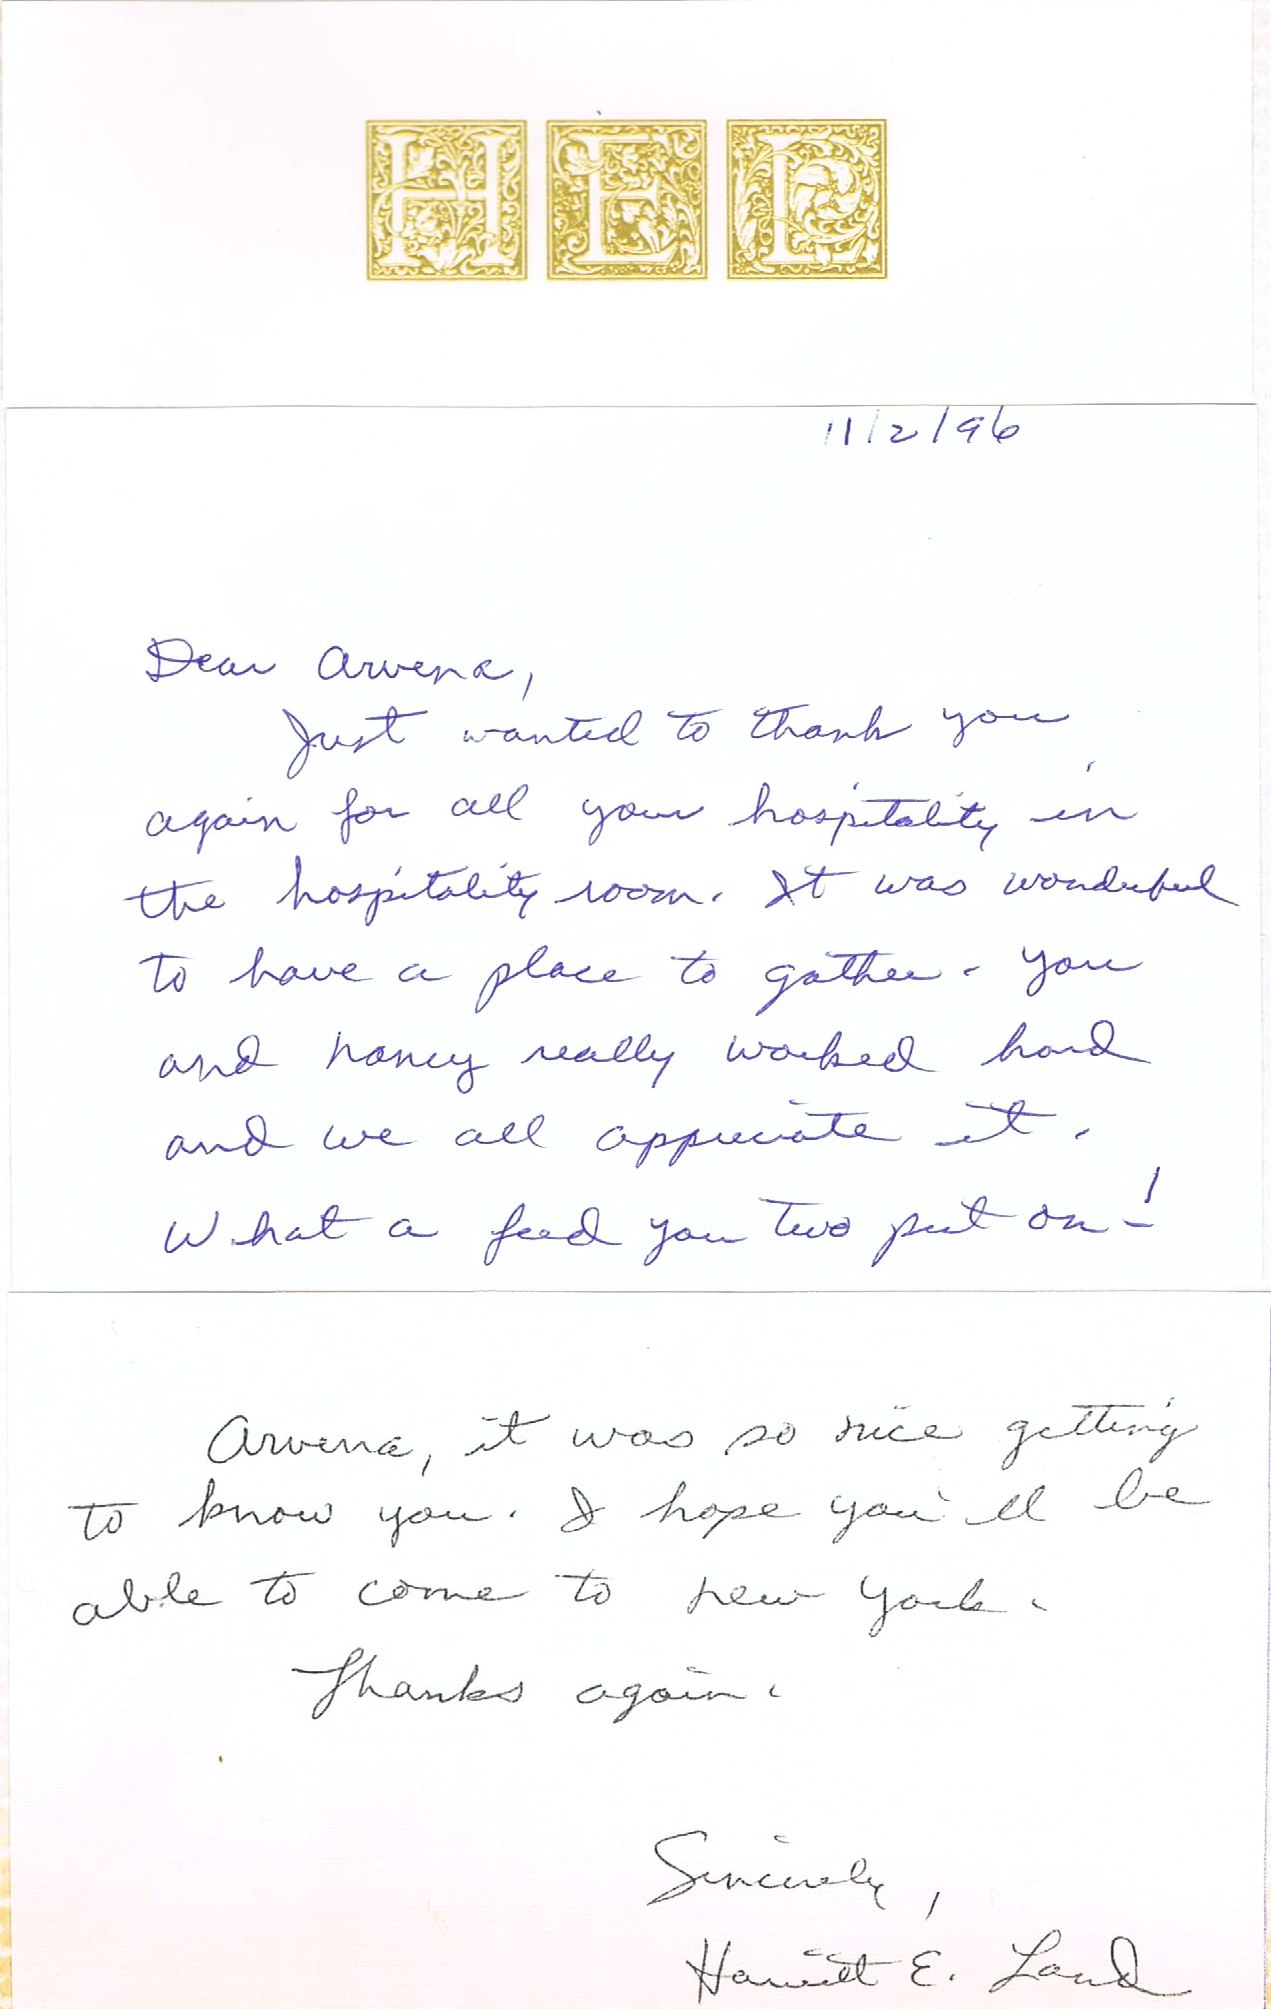 HEL
11/2/96
Dear Arvena,
Just wanted to thank you
again for all your hospitality in
the hospitality room. It was wonderful
to have a place to gather. You
and Nancy really worked hard
and we all appreciate it.
What a feed you two put on!
Arvena, it was so nice getting
to know you. I hope you'll be
able to come to New York.
Thanks again.
Sincerely,
Harriett E. Land